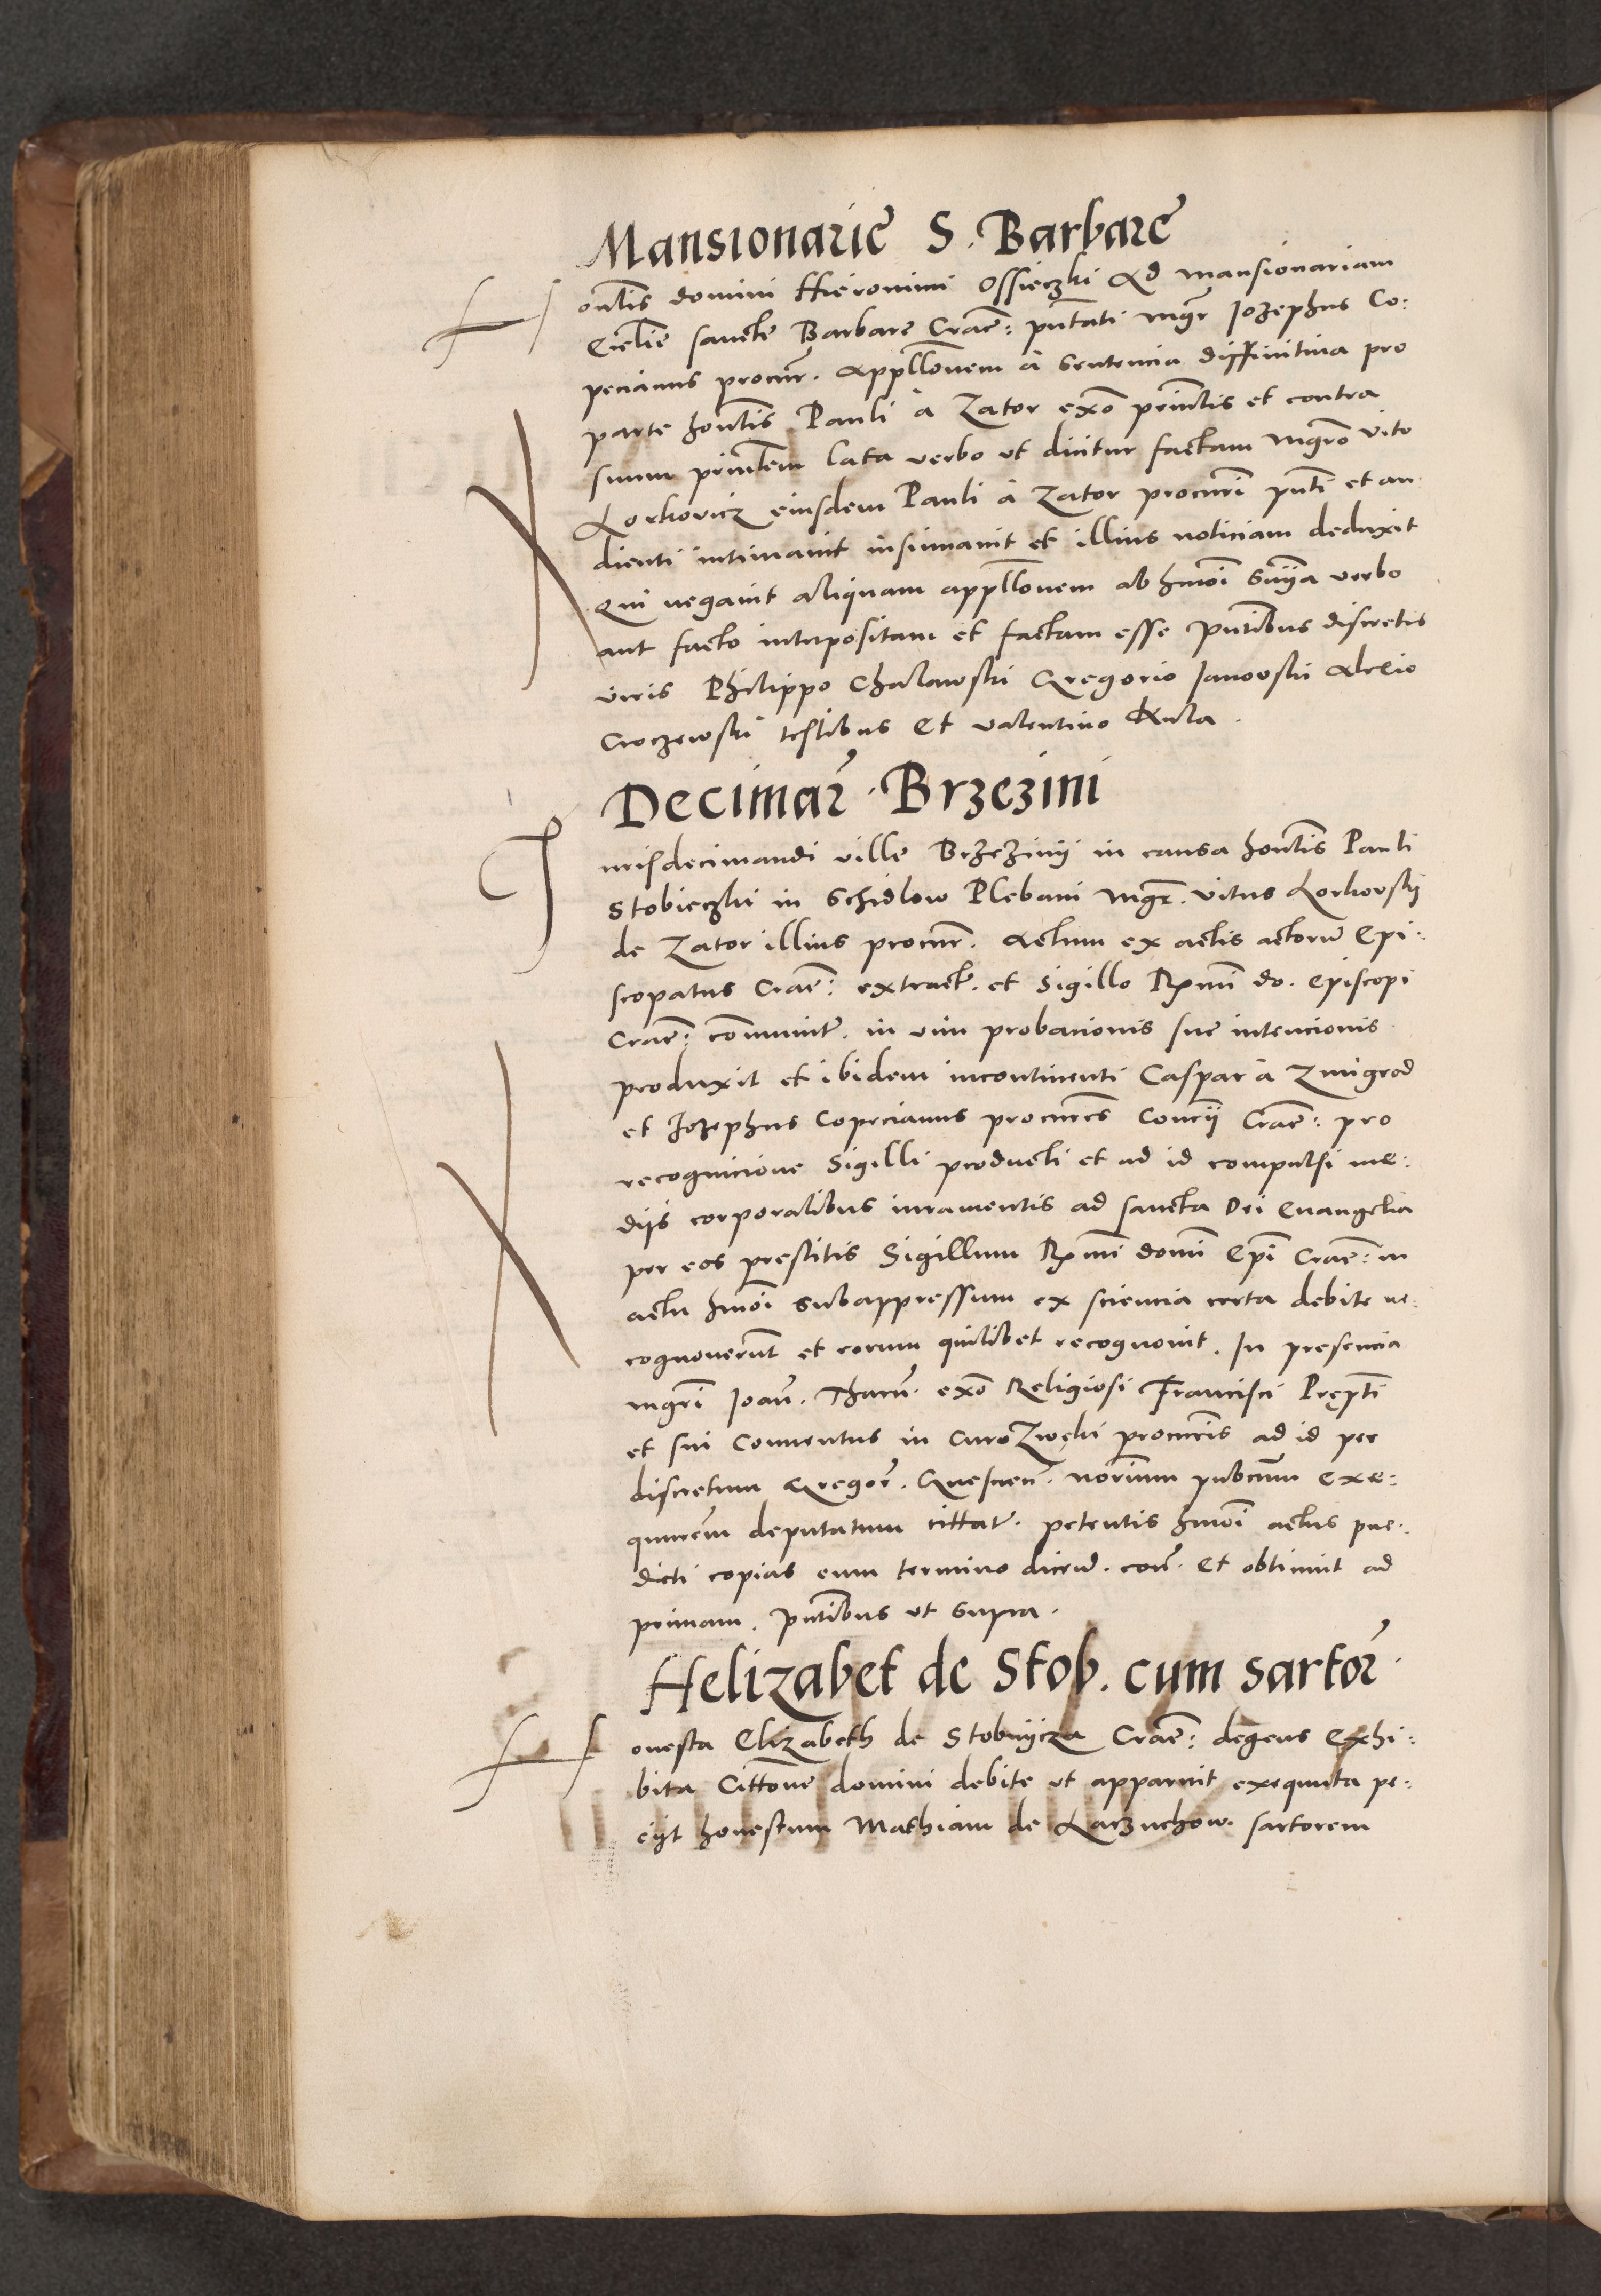 Mansionarie S. Barbare
Honlis domini Hieronimi Ossieczki Ad mansionariam
Ecclie sancte Barbare Cracˉ: pntati mgr Jozephus Co:
pecianus procur. Applˉlonem a sentencia diffinitiva pro
parte honlis Pauli a Zator exo˜ prinlis et contra
suum prinlem lata verbo ut dicitur factam mgro Vito
Lorkovicz eiusdem Pauli a Zator procuri pnti et au
dienti intimavit insinuavit et illius noticiam deduxit
Qui negavit aliquam appllonem ab hmoi snia verbo
aut facto interpositam et factam esse pntibus discretis
viris Philippo Chalawski Gregorio Janovski
testibus Et Valentino
Decimar. Brzezini
Jurisdecimandi ville Brzezinij in causa honlis Pauli
Stobieczki in Schidlow Plebani mgr. Vitus Lorkovskij
de Zator illius procur. Actum ex actis actorum Epi:
scopatus Crac: extract. et Sigillo Rmi do. Episcopi
Crac: communit. in vim probacionis sue intencionis
produxit et ibidem incontinenti Caspar a Zmigrod
et Jozephus Copecianus procures Concij Crac: pro
recognicione Sigilli producti et ad id compulsi me:
dijs corporalibus iuramentis ad sancta Dei Evangelia
per eos prestitis Sigillum Rmi domi Epi Crac: in
actu hmoi subappressum ex sciencia certa debite re:
cognoverunt et eorum quilibet recognovit. In presencia
mgri Joan. Tharn. exo Religiosi Francisci Prepti
et sui Conventus in CuroZweki procuris ad id per
discretum Gregor. norium pubcum Exe:
quurem deputatum cittat. petentis hmoi actus pre:
dicti copias cum termino dicend. con. Et obtinuit ad
primam. pntibus ut supra.
Helizabet de Stob. cum sartor
Honesta Elizabeth de Stobnijcza Crac: degens Exhi:
bita Cittone domini debite ut apparuit exequuta pe:
cijt honestum Mathiam de Laczuchow. sartorem